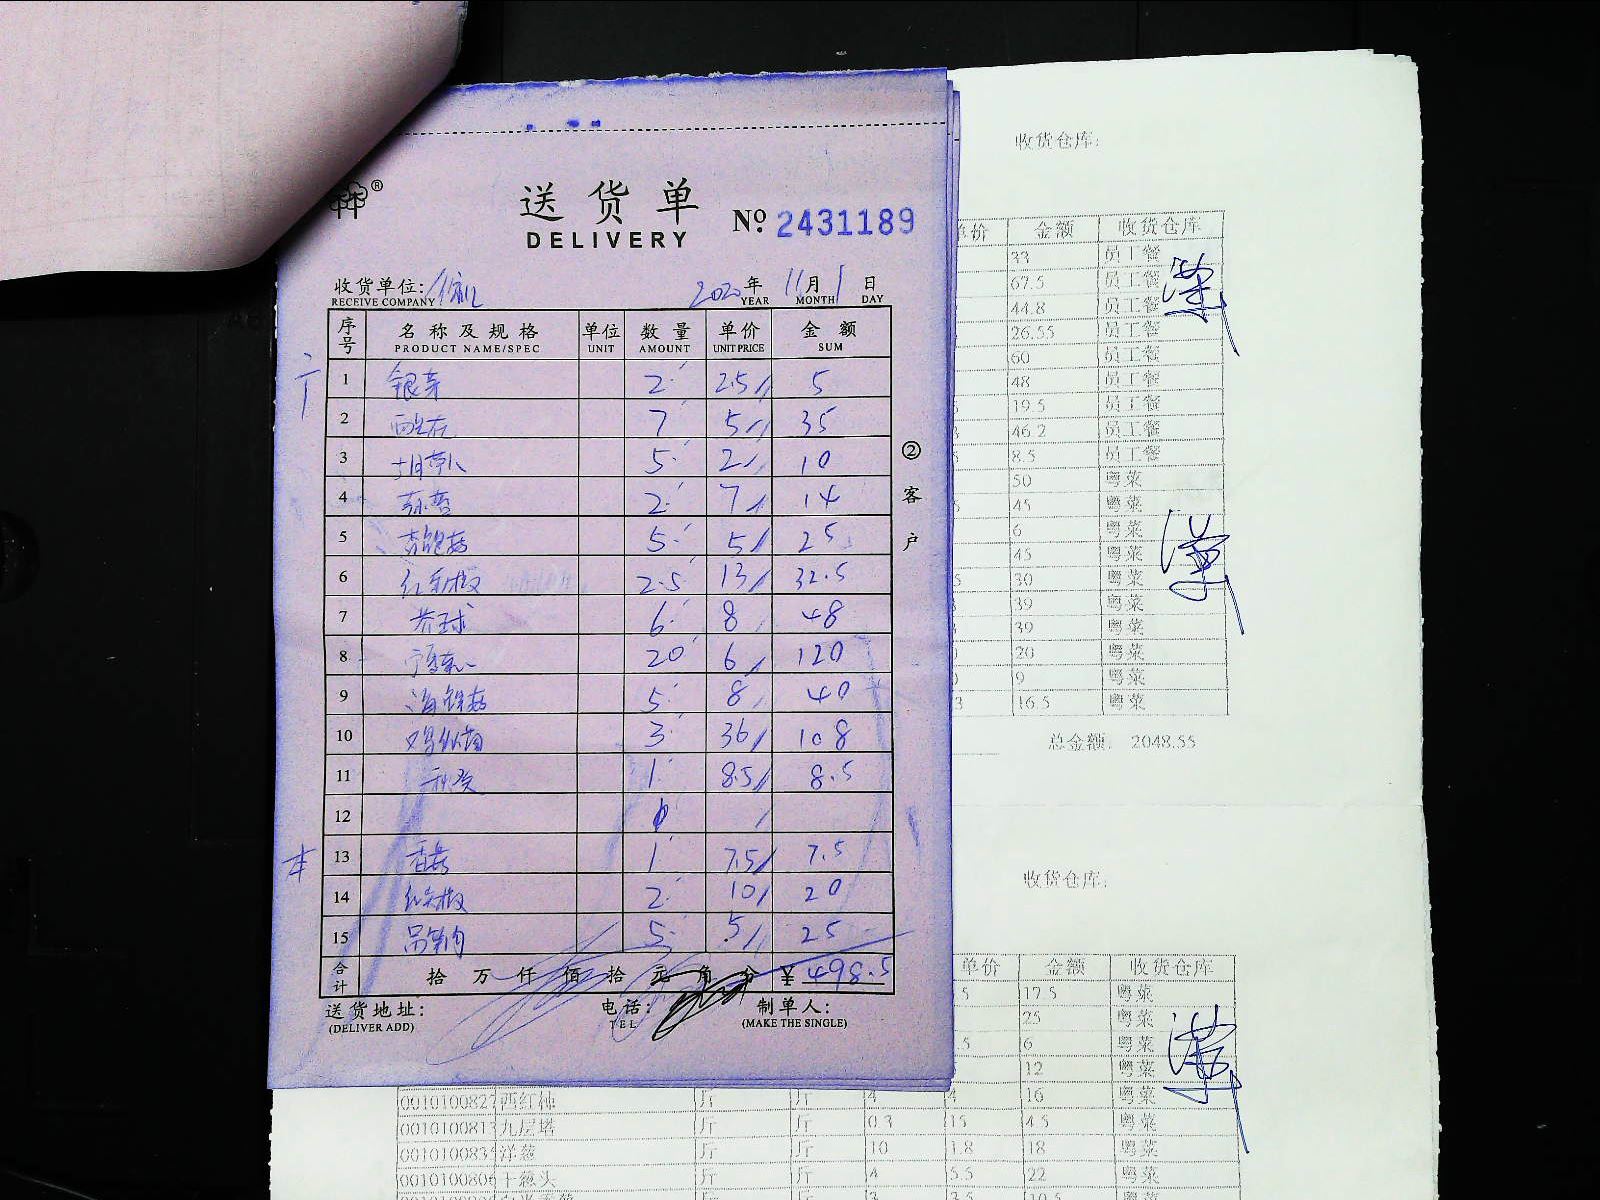 送货单
DELIVERY
No. 2431189
收货单位:
RECEIVE COMPANY
2020年 11月 1日
YEAR MONTH DAY
序号 名称及规格 单位 数量 单价 金额
PRODUCT NAME/SPEC UNIT AMOUNT UNIT PRICE SUM
1 银芽 2 2.5 5
2 西芹 7 5 35
3 胡萝卜 5 2 10
4 2 7 14
5 5 5 25
6 红美椒 2.5 13 32.5
7 6 8 48
8 20 6 120
9 海鲜菇 5 8 40
10 3 36 108
11 秋葵 1 8.5 8.5
12
13 香菇 1 7.5 7.5
14 红尖椒 2 10 20
15 5 5 25
合计 拾 万 仟 佰 拾 元 角 分 ¥ 498.5
送货地址: 电话: 制单人:
(DELIVER ADD) TEL (MAKE THE SINGLE)
②客户
收货仓库:
单价 金额 收货仓库
33 员工餐
67.5 员工餐
44.8 员工餐
26.55 员工餐
60 员工餐
48 员工餐
19.5 员工餐
46.2 员工餐
8.5 员工餐
50 粤菜
45 粤菜
6 粤菜
45 粤菜
30 粤菜
39 粤菜
39 粤菜
20 粤菜
9 粤菜
16.5 粤菜
总金额: 2048.55
收货仓库:
单价 金额 收货仓库
17.5 粤菜
25 粤菜
6 粤菜
12 粤菜
0010100827 西红柿 斤 斤 4 4 16 粤菜
0010100813 九层塔 斤 斤 0.3 15 4.5 粤菜
0010100835 洋葱 斤 斤 10 1.8 18 粤菜
0010100806 干葱头 斤 斤 4 5.5 22 粤菜
斤 斤 3 3.5 10.5 粤菜